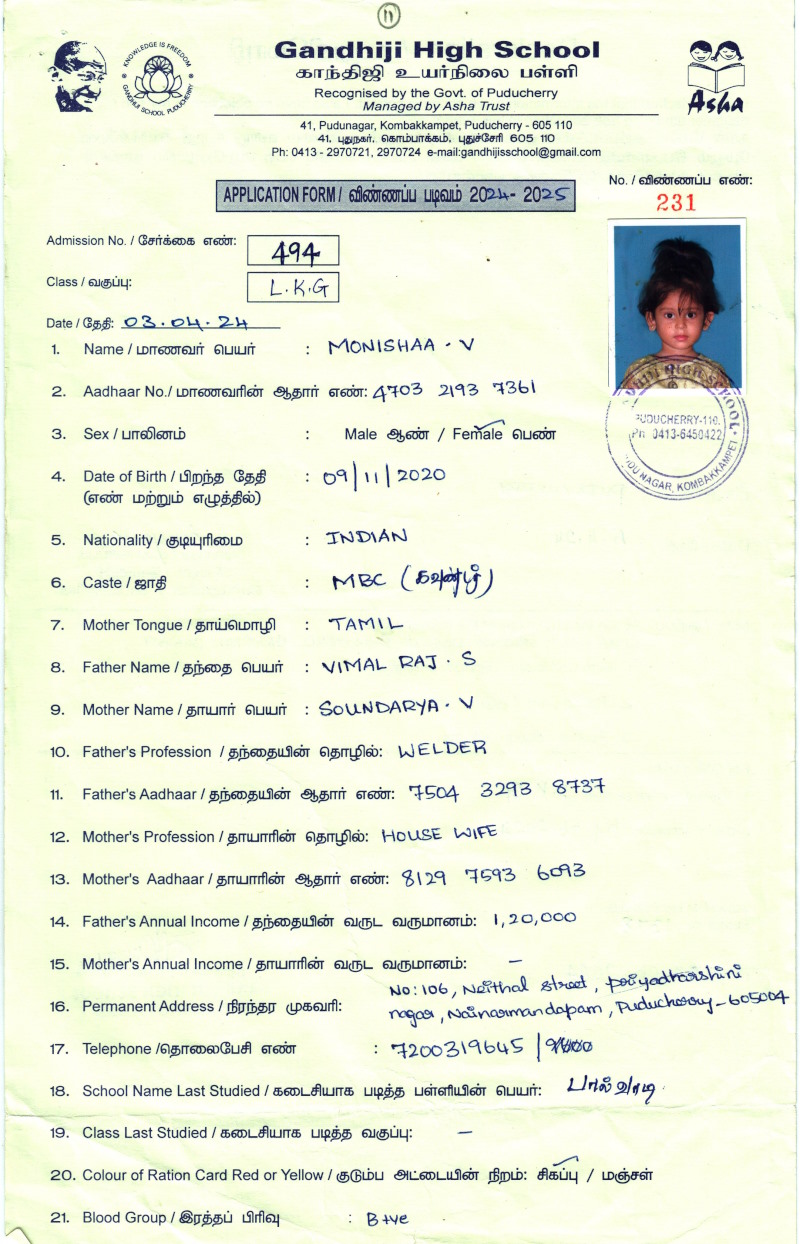 11
Gandhiji High School
காந்திஜி உயர்நிலை பள்ளி
Recognised by the Govt. of Puducherry
Managed by Asha Trust
KNOWLEDGE IS FREEDOM
GANDHIJI SCHOOL PUDUCHERRY
Asha
41, Pudunagar, Kombakkampet, Puducherry - 605 110
41, புதுநகர், கொம்பாக்கம், புதுச்சேரி 605 110
Ph: 0413 - 2970721, 2970724 e-mail:gandhijisschool@gmail.com
APPLICATION FORM / விண்ணப்ப படிவம் 2024 - 2025
No. / விண்ணப்ப எண்:
231
Admission No. / சேர்க்கை எண்: 494
Class / வகுப்பு: L.K.G
Date / தேதி: 03.04.24
1. Name / மாணவர் பெயர் : MONISHAA . V
2. Aadhaar No./ மாணவரின் ஆதார் எண்: 4703 2193 7361
3. Sex / பாலினம் : Male ஆண் / Female பெண்
HIGH SCHOOL
PUDUCHERRY-110.
Ph: 0413-6450422
NAGAR, KOMBAKKAMPET
4. Date of Birth / பிறந்த தேதி : 09/11/2020
(எண் மற்றும் எழுத்தில்)
5. Nationality / குடியுரிமை : INDIAN
6. Caste / ஜாதி : MBC
7. Mother Tongue / தாய்மொழி : TAMIL
8. Father Name / தந்தை பெயர் : VIMAL RAJ . S
9. Mother Name / தாயார் பெயர் : SOUNDARYA . V
10. Father's Profession / தந்தையின் தொழில்: WELDER
11. Father's Aadhaar / தந்தையின் ஆதார் எண்: 7504 3293 8737
12. Mother's Profession / தாயாரின் தொழில்: HOUSE WIFE
13. Mother's Aadhaar / தாயாரின் ஆதார் எண்: 8129 7593 6093
14. Father's Annual Income / தந்தையின் வருட வருமானம்: 1,20,000
15. Mother's Annual Income / தாயாரின் வருட வருமானம்: –
16. Permanent Address / நிரந்தர முகவரி: No: 106, Neithal street, priyadharshini
nagar, Nainarmandapam, Puducherry - 605004
17. Telephone /தொலைபேசி எண் : 7200319645 /
18. School Name Last Studied / கடைசியாக படித்த பள்ளியின் பெயர்: பால்வாடி
19. Class Last Studied / கடைசியாக படித்த வகுப்பு: –
20. Colour of Ration Card Red or Yellow / குடும்ப அட்டையின் நிறம்: சிகப்பு / மஞ்சள்
21. Blood Group / இரத்தப் பிரிவு : B+ve